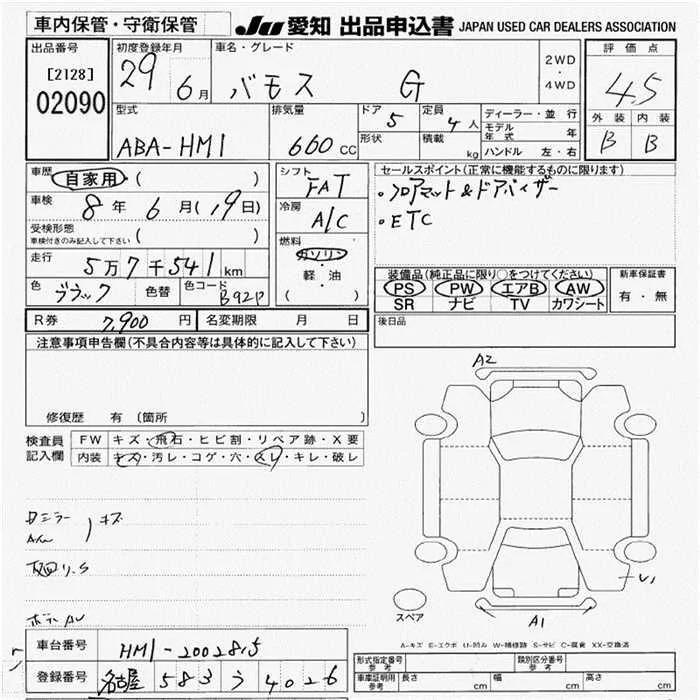 車内保管・守衛保管
JU 愛知 出品申込書 JAPAN USED CAR DEALERS ASSOCIATION
出品番号 [2128] 02090
初度登録年月 29 6月
車名・グレード バモス G
2WD・4WD
評価点 4.5
外装 B 内装 B
型式 ABA-HM1
排気量 660 CC
ドア 5 定員 4人
形状 積載 kg
ディーラー・並行
モデル年式 年
ハンドル 左・右
車歴 自家用 ( )
車検 8年 6月(19日)
受検形態 車検付きのみ記入して下さい ( )
走行 5万7千541km
色 ブラック 色替 色コード B92P
シフト FAT
冷房 A/C
燃料 ガソリン・軽・油 ( )
セールスポイント(正常に機能するものに限ります)
・フロアマット&ドアバイザー
・ETC
装備品(純正品に限り○をつけてください)
PS PW エアB AW
SR ナビ TV カワシート
新車保証書 有・無
後日品
R券 7,900円 名変期限 月 日
注意事項申告欄(不具合内容等は具体的に記入して下さい)
修復歴 有 〔箇所 〕
検査員記入欄
FW キズ・飛石・ヒビ割・リペア跡・X要
内装 キズ・汚レ・コゲ・穴・スレ・キレ・破レ
ミラー キズ
A2
U1
A1
スペア
A-キズ E-エクボ U-凹み W-補修跡 S-サビ C-腐食 XX-交換済
車台番号 HM1-2002815
登録番号 名古屋 583 う 4026
形式指定番号 参考 類別区分番号 参考
車庫証明用 参考 長さ cm 幅 cm 高さ cm